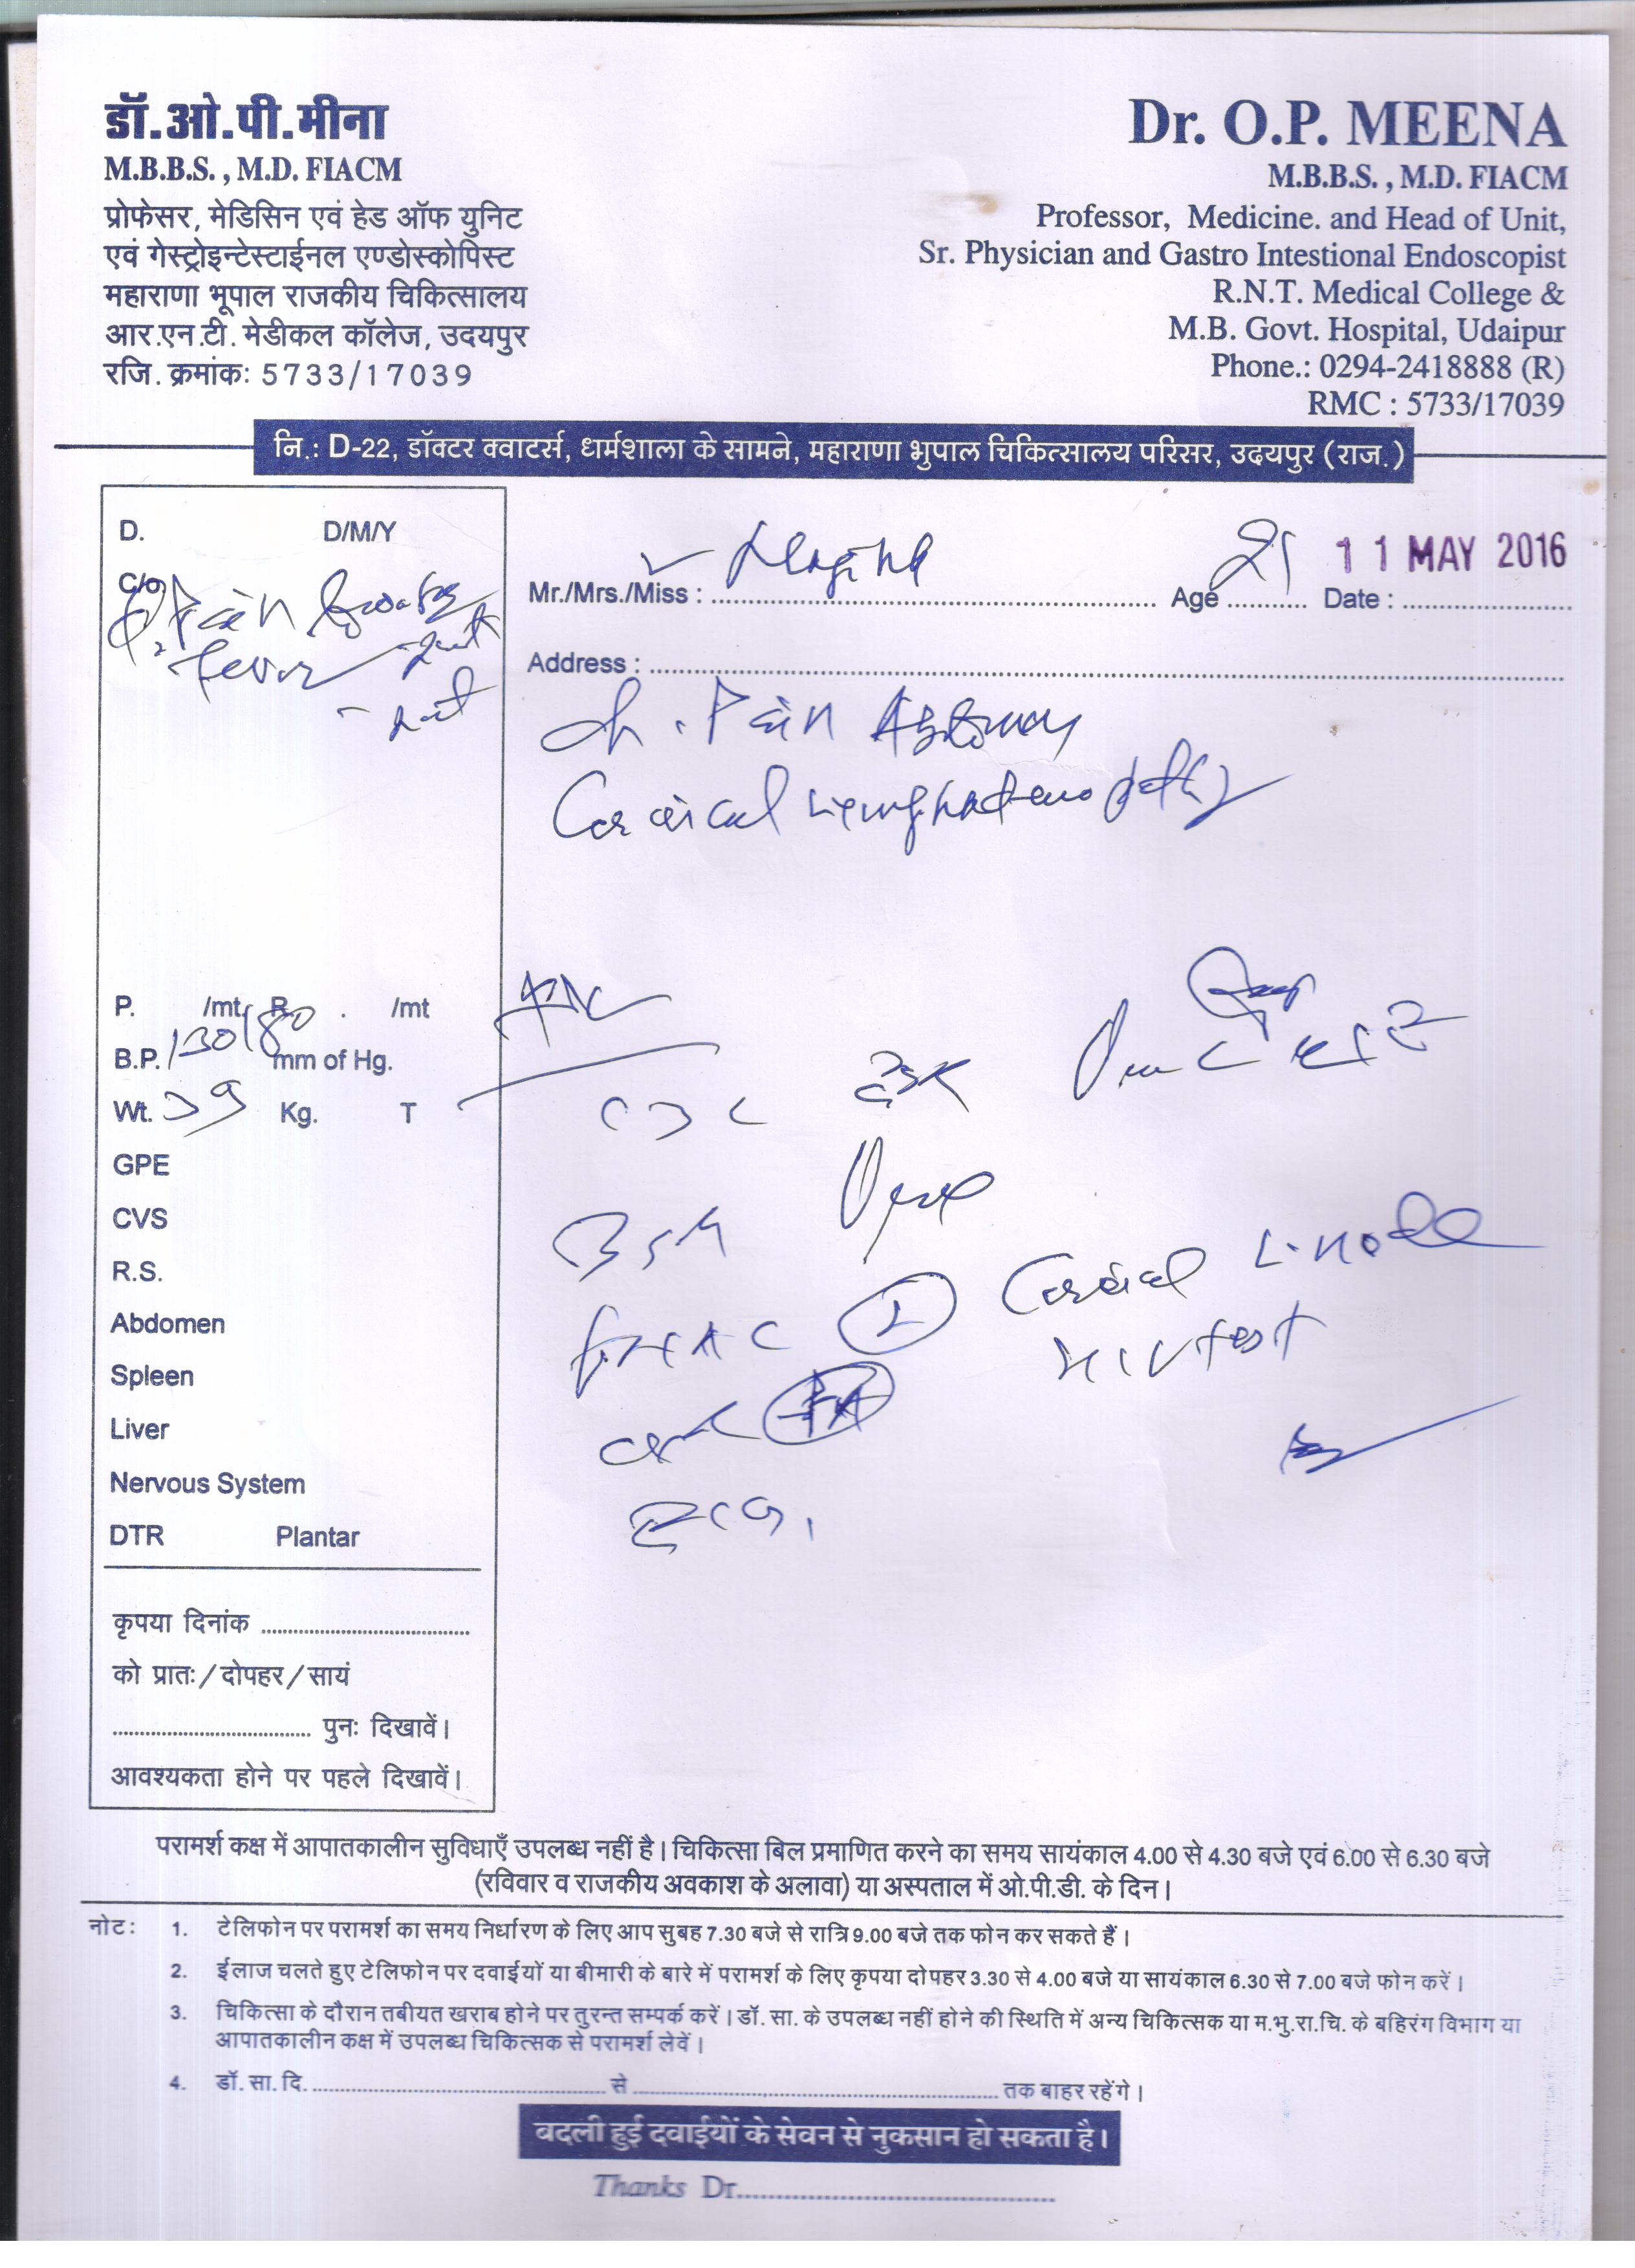 डॉ.ओ.पी.मीना
M.B.B.S. , M.D. FIACM
प्रोफेसर, मेडिसिन एवं हेड ऑफ युनिट
एवं गेस्ट्रोइन्टेस्टाईनल एण्डोस्कोपिस्ट
महाराणा भूपाल राजकीय चिकित्सालय
आर.एन.टी. मेडीकल कॉलेज, उदयपुर
रजि. क्रमांकः 5733/17039
Dr. O.P. MEENA
M.B.B.S. , M.D. FIACM
Professor, Medicine. and Head of Unit,
Sr. Physician and Gastro Intestional Endoscopist
R.N.T. Medical College &
M.B. Govt. Hospital, Udaipur
Phone.: 0294-2418888 (R)
RMC : 5733/17039
नि.: D-22, डॉक्टर क्वाटर्स, धार्मशाला के सामने, महाराणा भुपाल चिकित्सालय परिसर, उदयपुर (राज.)
D. D/M/Y
C/o
Pain
fever
P. /mt. R . /mt
B.P. 130/80 mm of Hg.
Wt. 39 Kg. T
GPE
CVS
R.S.
Abdomen
Spleen
Liver
Nervous System
DTR Plantar
कृपया दिनांक
को प्रातः/दोपहर/सायं
पुनः दिखावें।
आवश्यकता होने पर पहले दिखावें।
Mr./Mrs./Miss : Age 21 Date : 11 MAY 2016
Address :
Pain Abdomen
Cervical lymphadenopathy
CBC ESR
BSR
FNAC Cervical L. node
HIV test
ECG
परामर्श कक्ष में आपातकालीन सुविधाएँ उपलब्ध नहीं है। चिकित्सा बिल प्रमाणित करने का समय सायंकाल 4.00 से 4.30 बजे एवं 6.00 से 6.30 बजे
(रविवार व राजकीय अवकाश के अलावा) या अस्पताल में ओ.पी.डी. के दिन।
नोटः 1. टेलिफोन पर परामर्श का समय निर्धारण के लिए आप सुबह 7.30 बजे से रात्रि 9.00 बजे तक फोन कर सकते हैं।
2. ईलाज चलते हुए टेलिफोन पर दवाईयों या बीमारी के बारे में परामर्श के लिए कृपया दोपहर 3.30 से 4.00 बजे या सायंकाल 6.30 से 7.00 बजे फोन करें।
3. चिकित्सा के दौरान तबीयत खराब होने पर तुरन्त सम्पर्क करें। डॉ. सा. के उपलब्ध नहीं होने की स्थिति में अन्य चिकित्सक या म.भु.रा.चि. के बहिरंग विभाग या
आपातकालीन कक्ष में उपलब्ध चिकित्सक से परामर्श लेवें।
4. डॉ. सा. दि. से तक बाहर रहेंगे।
बदली हुई दवाईयों के सेवन से नुकसान हो सकता है।
Thanks Dr.